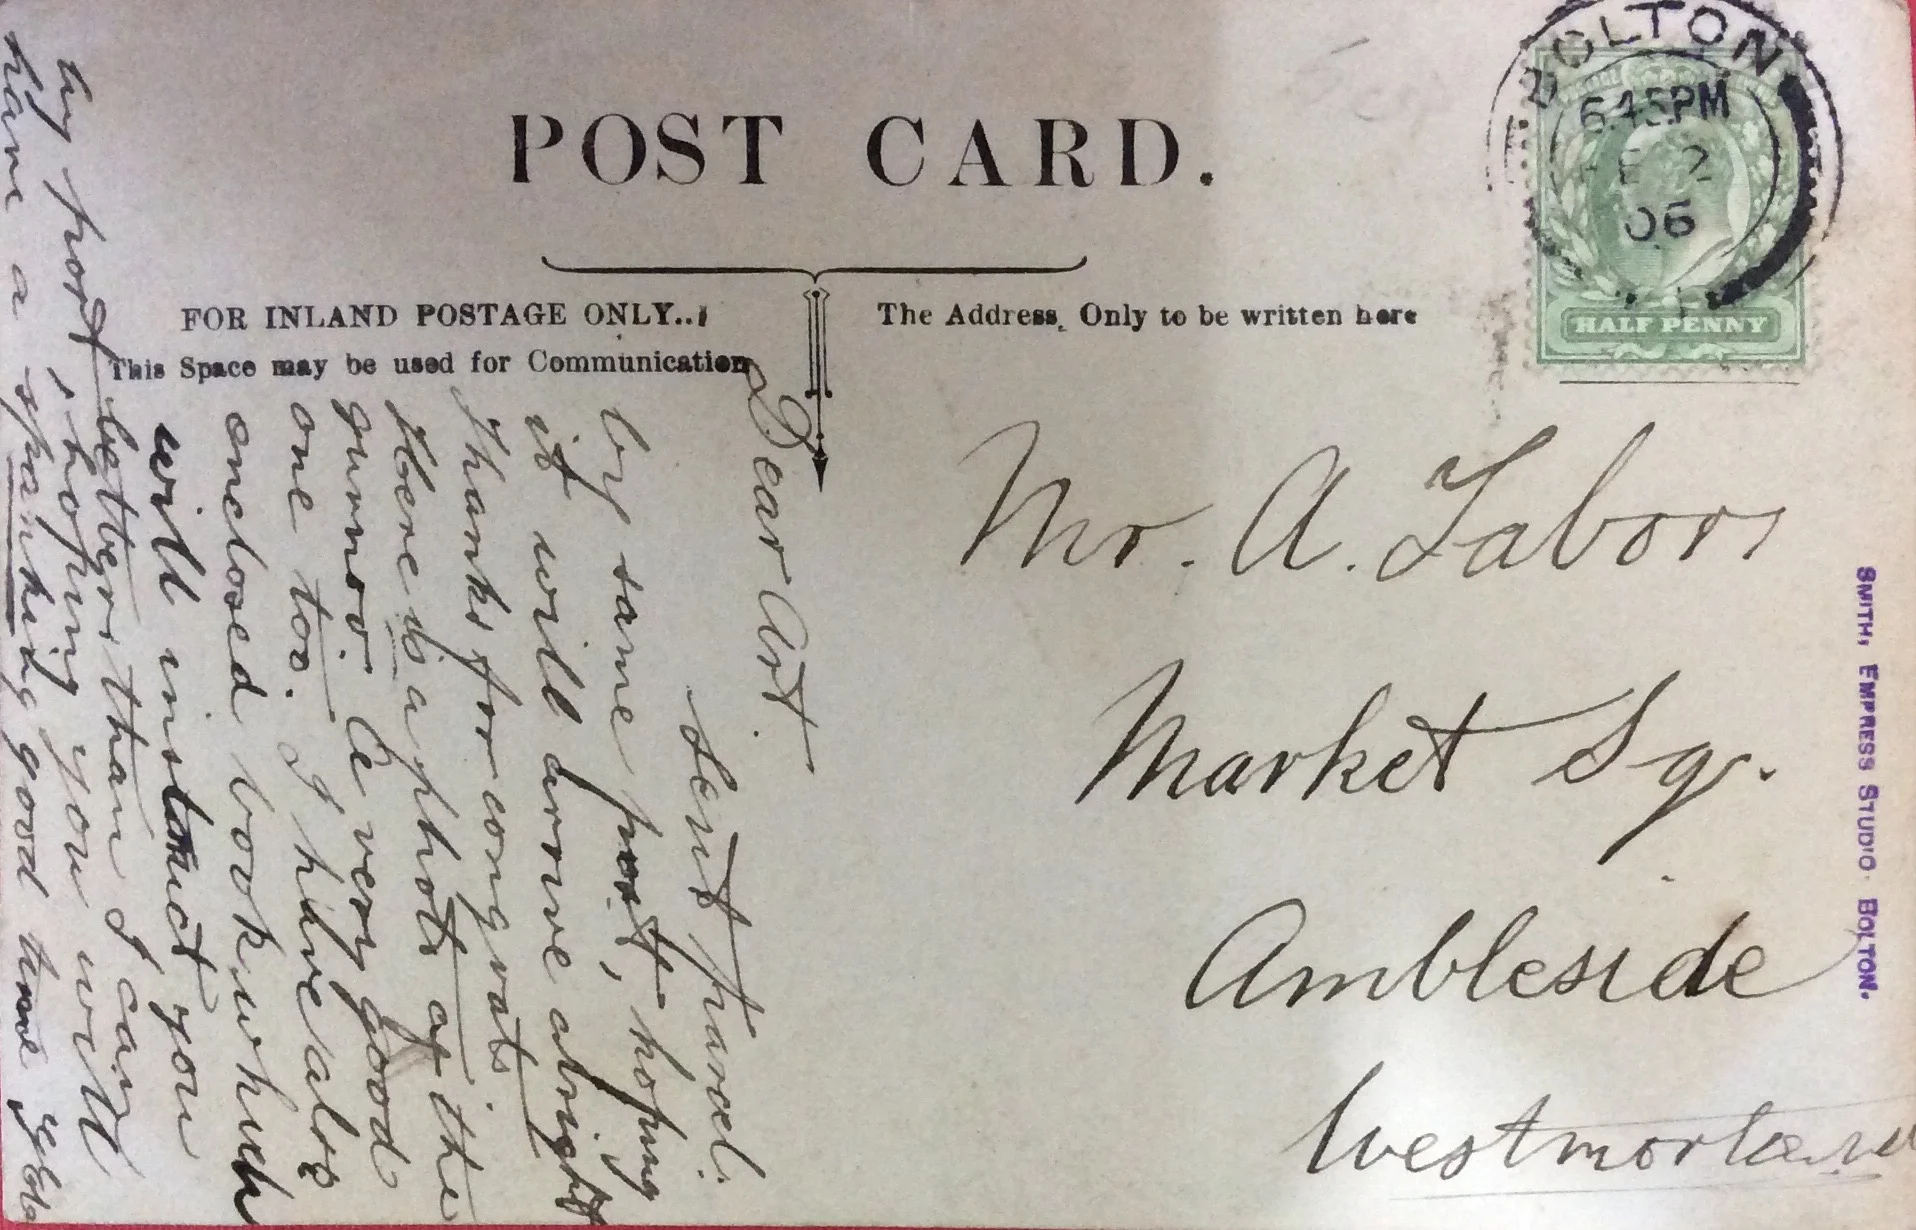 POST CARD.
FOR INLAND POSTAGE ONLY..
This Space may be used for Communication
The Address Only to be written here
BOLTON
6.45PM
FE 2
06
HALF PENNY
Mr. A. Tabor
Market Sq.
Ambleside
Westmorland
SMITH, EMPRESS STUDIO BOLTON.
Dear Art
Sent parcel
by same post, hoping
it will arrive alright
Thanks for congrats
Here is a photo of the
gunnor. A very good
one too. I have also
enclosed book which
will instruct you
better than I can
by post, hoping you will
have a spanking good time